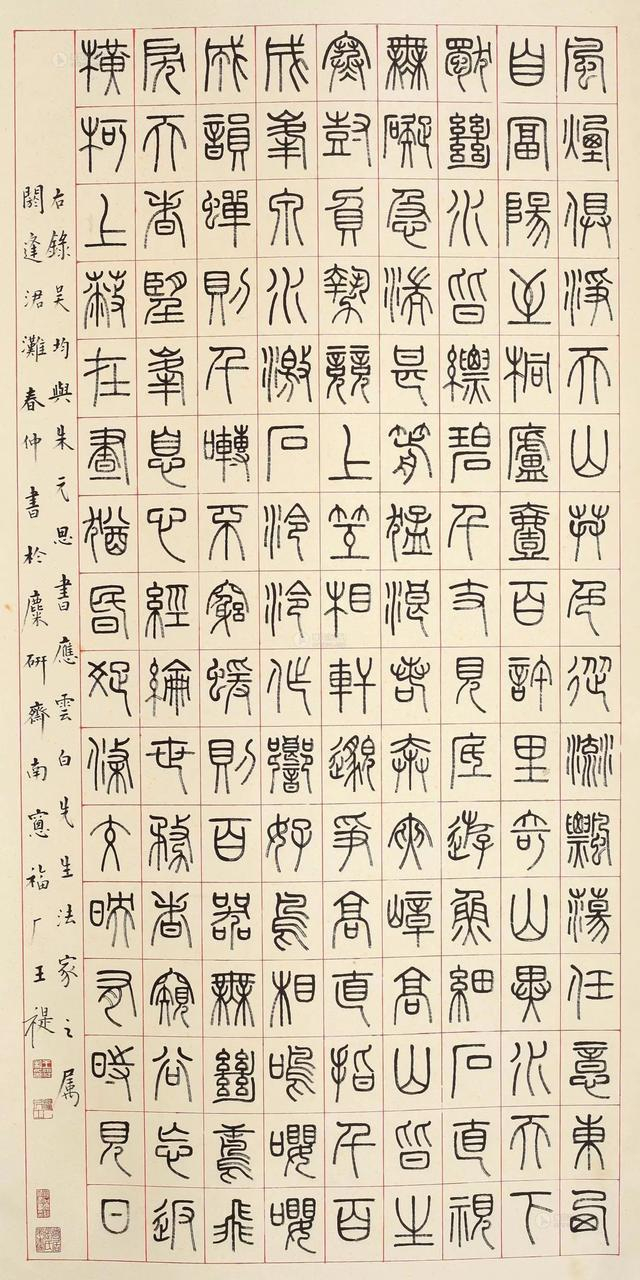 風煙俱淨天山共色從流飄蕩任意東西
自富陽至桐廬壹百許里奇山異水天下
獨絕水皆縹碧千丈見底游魚細石直視
無礙急湍甚箭猛浪若奔夾嶂高山皆生
寒樹負勢競上互相軒邈爭高直指千百
成峯泉水激石泠泠作響好鳥相鳴嚶嚶
成韻蟬則千囀不窮蝯則百嘂無絕鳶飛
戾天者望峯息心經綸世務者窺谷忘返
橫柯上蔽在晝猶昏疏條交映有時見日
右錄吳均與朱元思書應雲白先生法家之属
閼逢涒灘春仲書於麋研齋南窻福厂王禔